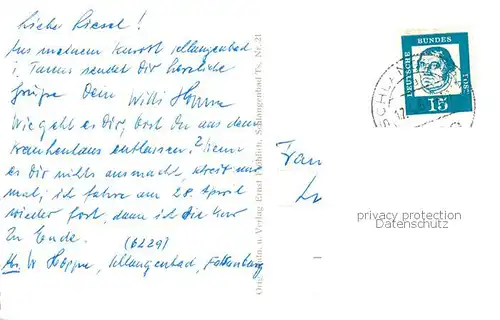 Liebe Liesel!
Aus meinem Kurort Schlangenbad
i. Taunus sendet Dir herzliche
Grüße Dein Willi Hoppe
Wie geht es Dir, bist Du aus dem
Krankenhaus entlassen? Wenn
es Dir nichts ausmacht, schreib mir
mal; ich fahre am 28. April
wieder fort, dann ist die Kur
zu Ende.
(6229)
Abs. W Hoppe, Schlangenbad, Falkenburg
Verlag Ernst Schlangenbad Ts. Nr. 21
DEUTSCHE BUNDESPOST
15
SCHLAN
Frau
privacy protection
Datenschutz